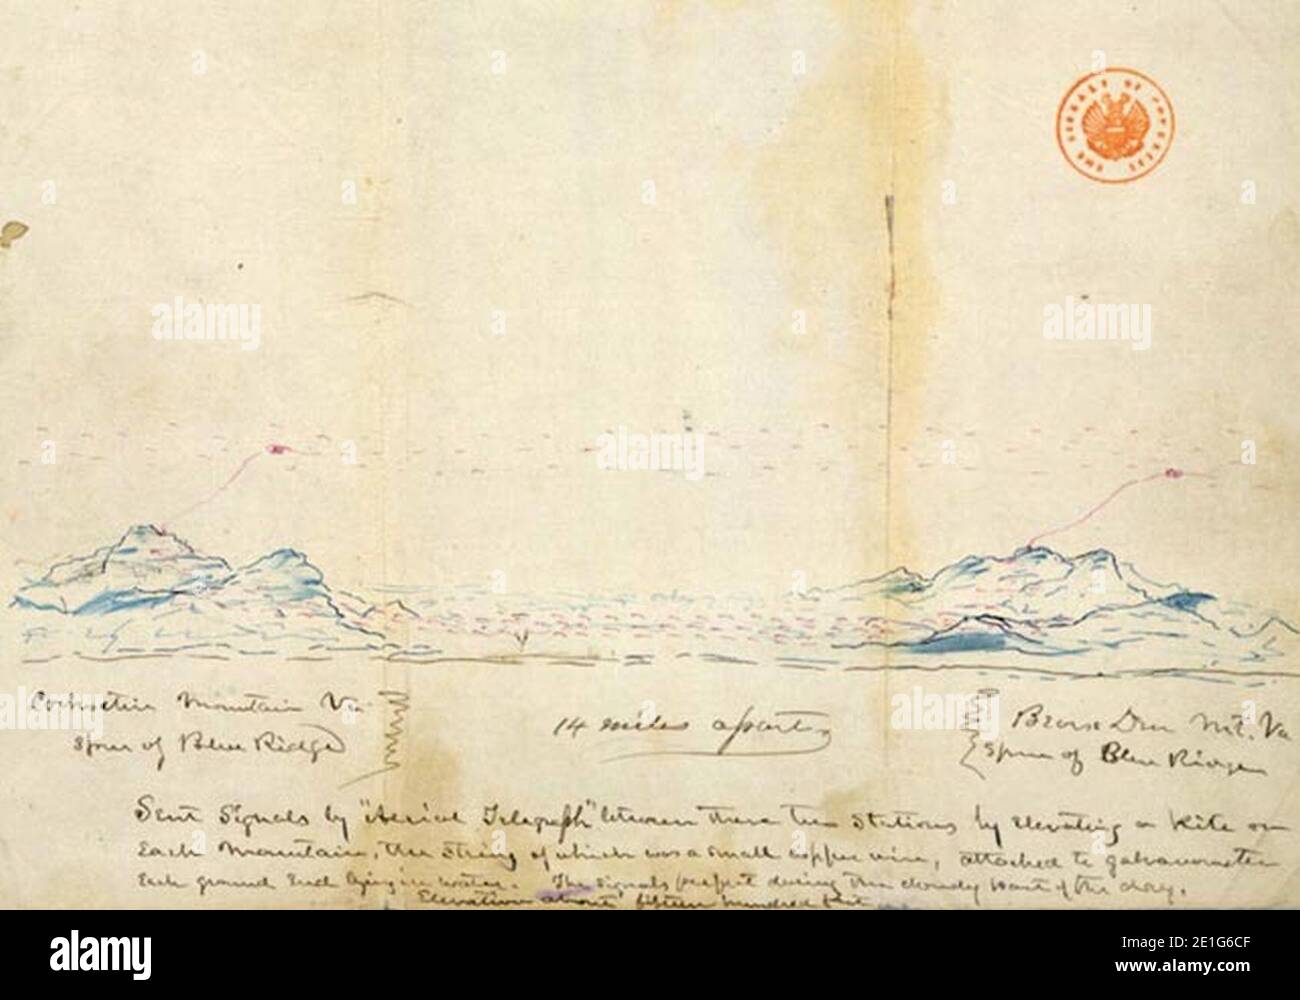 THE LIBRARY OF CONGRESS
alamy
Mountain Va
Spur of Blue Ridge
14 miles apart
Mt. Va
Spur of Blue Ridge
Sent Signals by "Aerial Telegraph" between these two stations by elevating a Kite on
each mountain, the string of which was a small copper wire, attached to galvanometer
each ground end lying in water. The signals perfect during the cloudy part of the day.
Elevation about fifteen hundred feet
alamy
Image ID: 2E1G6CF
www.alamy.com